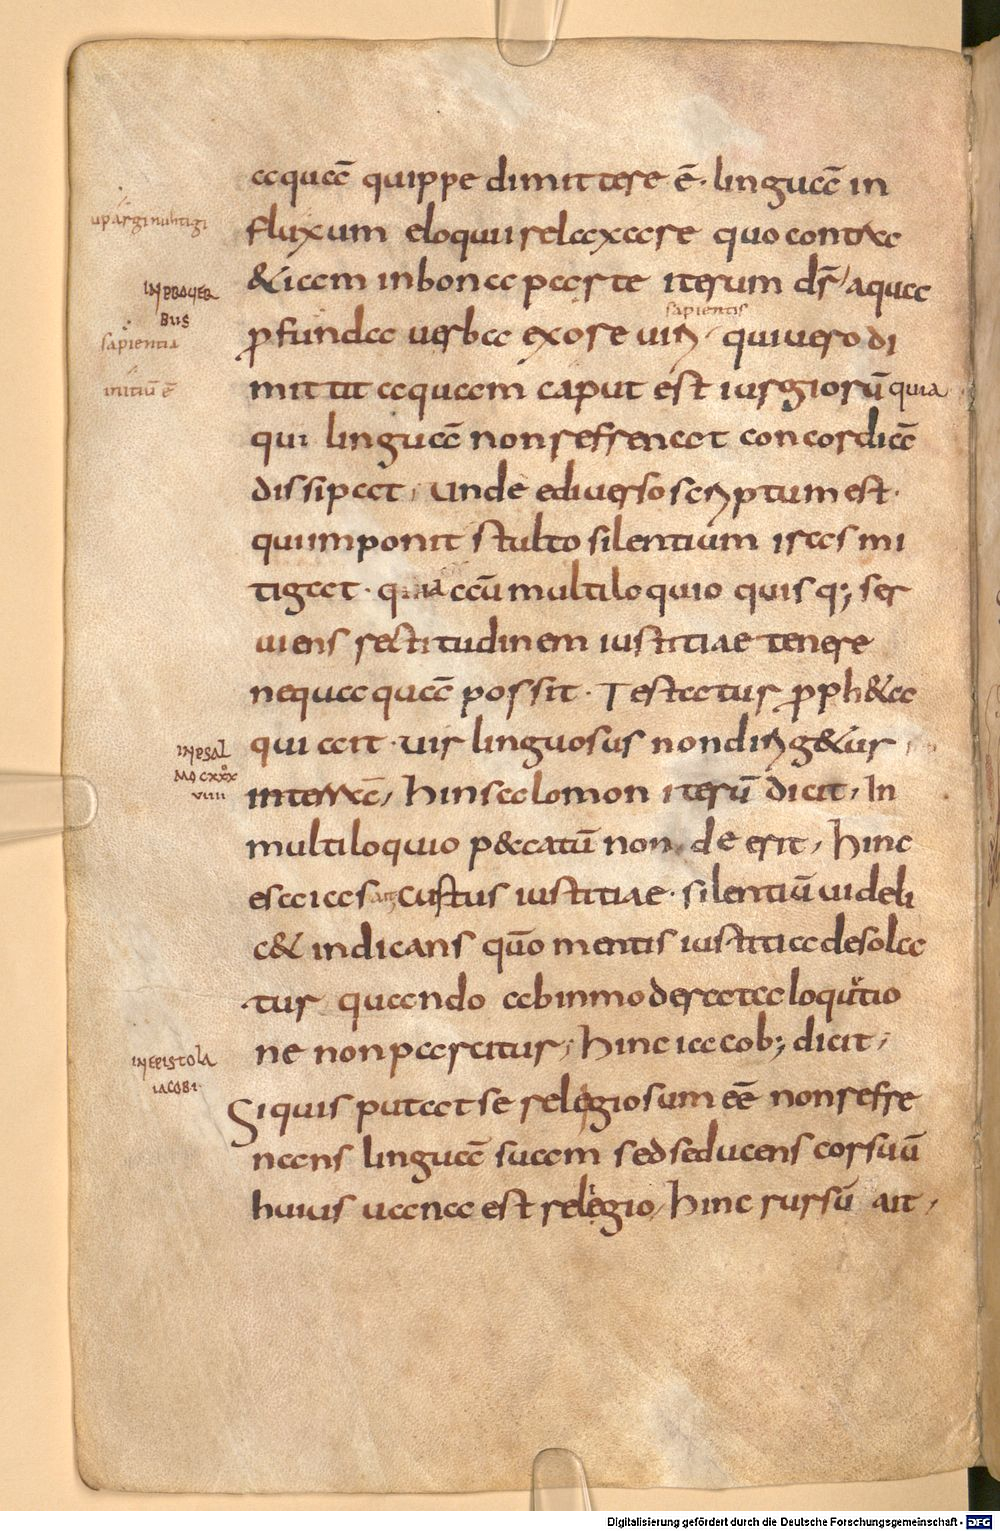 aquā quippe dimittere ē· linguā in
fluxum eloquii relaxare quo contra
&iam in bona parte iterum dr̄ aqua
sapientis
ꝓfunda uerba ex ore uiri· qui uero di
mittit aquam caput est iurgiorū quia
qui linguā non refrenat concordiā
dissipat, unde e diuerso scriptum est·
qui imponit stulto silentium iras mi
tigat· quia aū multiloquio quisq; ser
uiens rectitudinem iustitiae tenere
nequaquā possit· Testatur ꝓph&a
qui ait· uir linguosus non dirig&ur
IN PROUER
BUS
sapientia
initiū ē
IN PSAL
MO CXXX
VIIII
in terrā, hinc salomon iterū dicit, In
multiloquio p&catū non deerit, hinc
esaias ait Cultus iustitiae· silentiū uideli
c& indicans quō mentis iustitia desola
tur quando ab inmoderata loqutio
ne non parcitur, hinc iacob; dicit,
IN EPISTOLA
IACOBI·
Si quis putat se relegiosum eē non refre
nans linguā suam sed seducens cor suū
huius uana est relegio, hinc rursū ait,
Digitalisierung gefördert durch die Deutsche Forschungsgemeinschaft - DFG